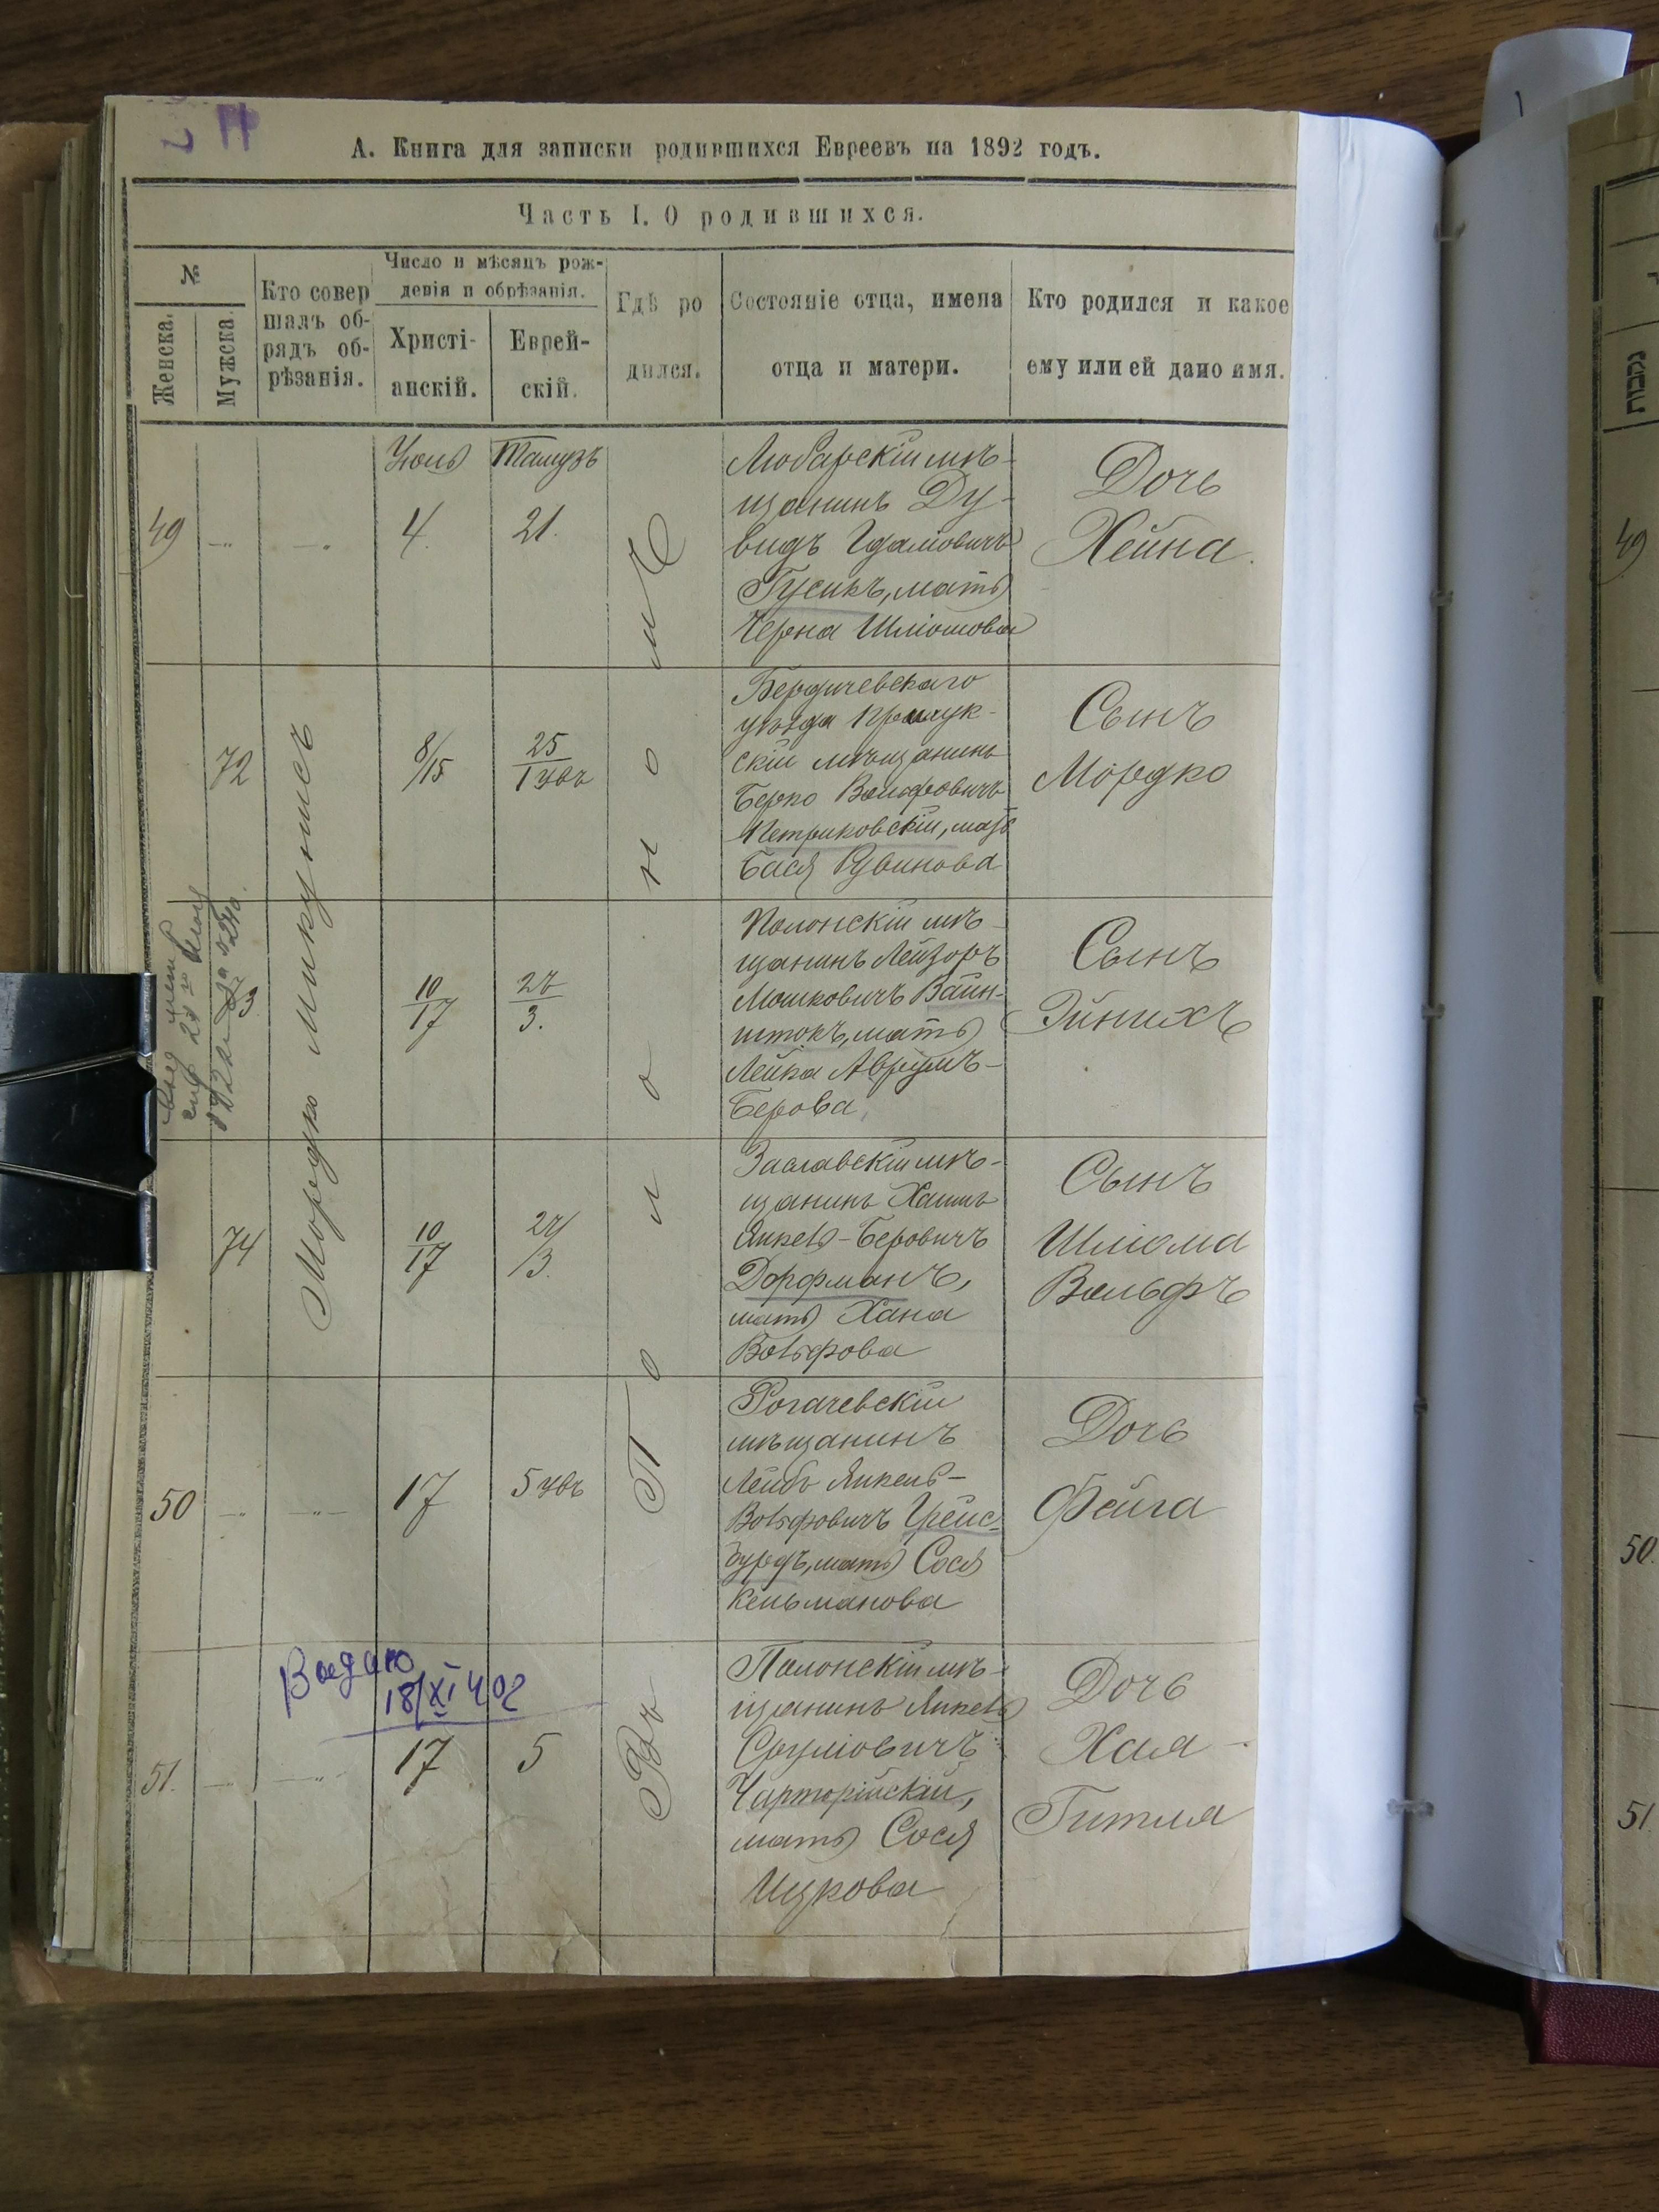 А. Книга для записки родившихся Евреевъ на 1892 годъ.
Часть I. О родившихся.
№
Женска.
Мужска.
Кто совер
шалъ об-
рядъ об-
рѣзанія.
Число и мѣсяцъ рож-
денія и обрѣзанія.
Христі-
анскій.
Еврей-
скій.
Гдѣ ро
дился.
Состояніе отца, имена
отца и матери.
Кто родился и какое
ему или ей дано имя.
Мордко
Въ Полономъ
49
Іюль
4.
Тамузъ
21.
Любарскій мѣ-
щанинъ Ду-
видъ Гдаліовичъ
Гусикъ, мать
Черна Шліомова
Дочь
Хейна.
72
8/15
25
1 Увъ
Бердичевскаго
уѣзда
скій мѣщанинъ
Берко Вольфовичъ
Петриковскій, мать
Бася Рувинова
Сынъ
Мордко
3
10
17
27
3.
Полонскій мѣ-
щанинъ Лейзоръ
Мошковичъ Вайн-
штокъ, мать
Лейка Аврумъ-
Берова
Сынъ
Эйнихъ
74
10
17
27/
3.
Заславскій мѣ-
щанинъ Хаимъ
Янкель-Беровичъ
Дорфманъ,
мать Хана
Вольфова
Сынъ
Шліома
Вольфъ
50
17
5 Увъ
Рогачевскій
мѣщанинъ
Лейбъ Янкель-
Вольфовичъ
мать Сося
Кельманова
Дочь
Фейга
18/XI 402
51.
17
5
Полонскій мѣ-
щанинъ Янкель
Сруліовичъ
Чарторійскій,
мать Сося
Ицкова
Дочь
Хая-
Гитля
נקבות
49
50.
51